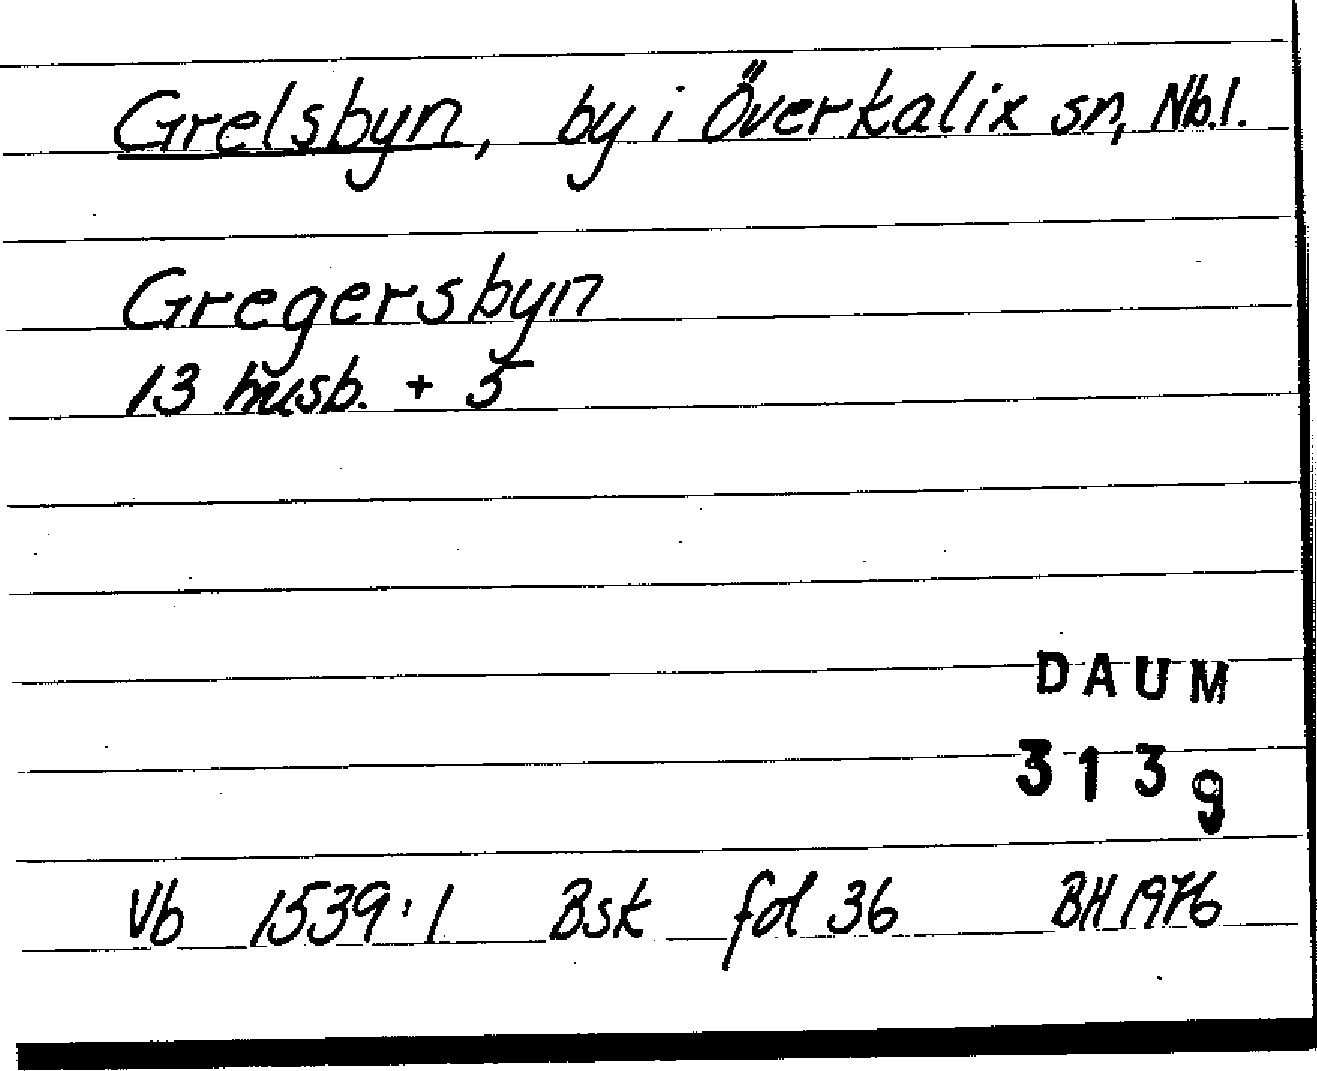 Grelsbyn, by i Överkalix sn, Nb.l.
Gregersbyn
13 husb. + 5
DAUM
3139
Vb 1539:1 Bsk fol 36 BH 1976